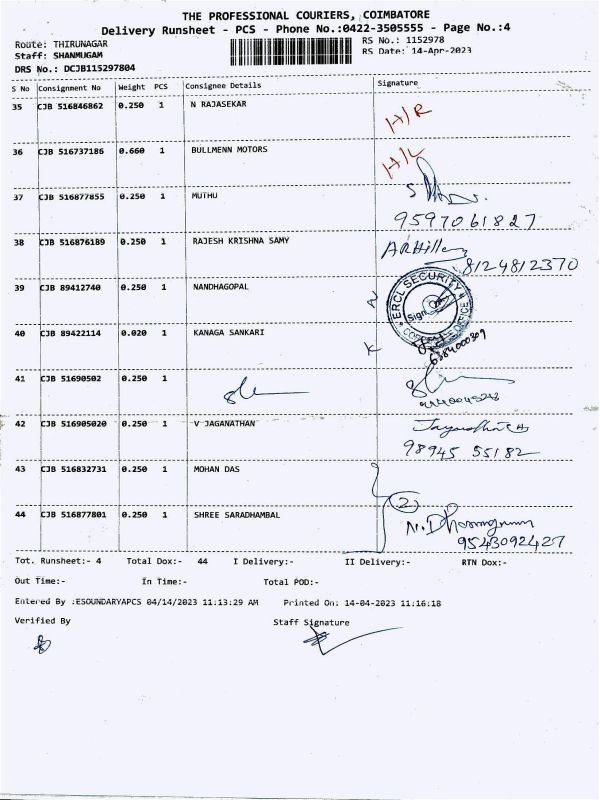 THE PROFESSIONAL COURIERS, COIMBATORE
Delivery Runsheet - PCS - Phone No.:0422-3505555 - Page No.:4
Route: THIRUNAGAR RS No.: 1152978
Staff: SHANMUGAM RS Date: 14-Apr-2023
DRS No.: DCJB115297804
S No Consignment No Weight PCS Consignee Details Signature
35 CJB 516846862 0.250 1 N RAJASEKAR H/R
36 CJB 516737186 0.660 1 BULLMENN MOTORS H/L
37 CJB 516877855 0.250 1 MUTHU
9597061827
38 CJB 516876189 0.250 1 RAJESH KRISHNA SAMY
8124812370
39 CJB 89412740 0.250 1 NANDHAGOPAL
ERCL SECURITY
Sign
OFFICE
40 CJB 89422114 0.020 1 KANAGA SANKARI
6384000309
41 CJB 51690502 0.250 1
42 CJB 516905020 0.250 1 V JAGANATHAN
98945 55182
43 CJB 516832731 0.250 1 MOHAN DAS
2
44 CJB 516877801 0.250 1 SHREE SARADHAMBAL
9543092427
Tot. Runsheet:- 4 Total Dox:- 44 I Delivery:- II Delivery:- RTN Dox:-
Out Time:- In Time:- Total POD:-
Entered By :ESOUNDARYAPCS 04/14/2023 11:13:29 AM Printed On: 14-04-2023 11:16:18
Verified By Staff Signature